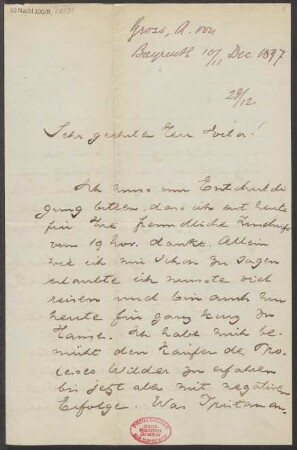 Gross, A. von
Bayreuth 10/11 Dec 1897
29/12
Sehr geehrter Herr
Ich muss um Entschuldi
gung bitten, dass ich erst heute
für Ihre freundliche Zuschrift
vom 19 Nov. danke. Allein
wie ich mir schon zu sagen
erlaubte ich musste viel
reisen und bin auch nur
heute für ganz kurz zu
Hause. Ich habe mich be-
müht den Käufer der
Wilder zu erfahren
bis jetzt alles mit negativem
Erfolge. Was Tristan an-